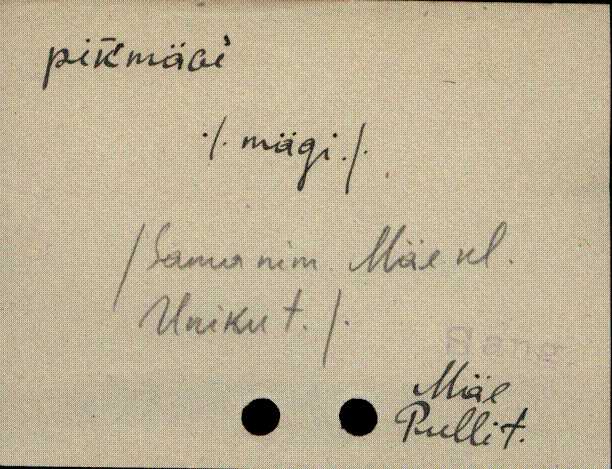 pikmäGi
./. mägi ./.
/Sama nim. Mäe kl.
Uniku t. /.
Räng
Mäe
Pulli t.